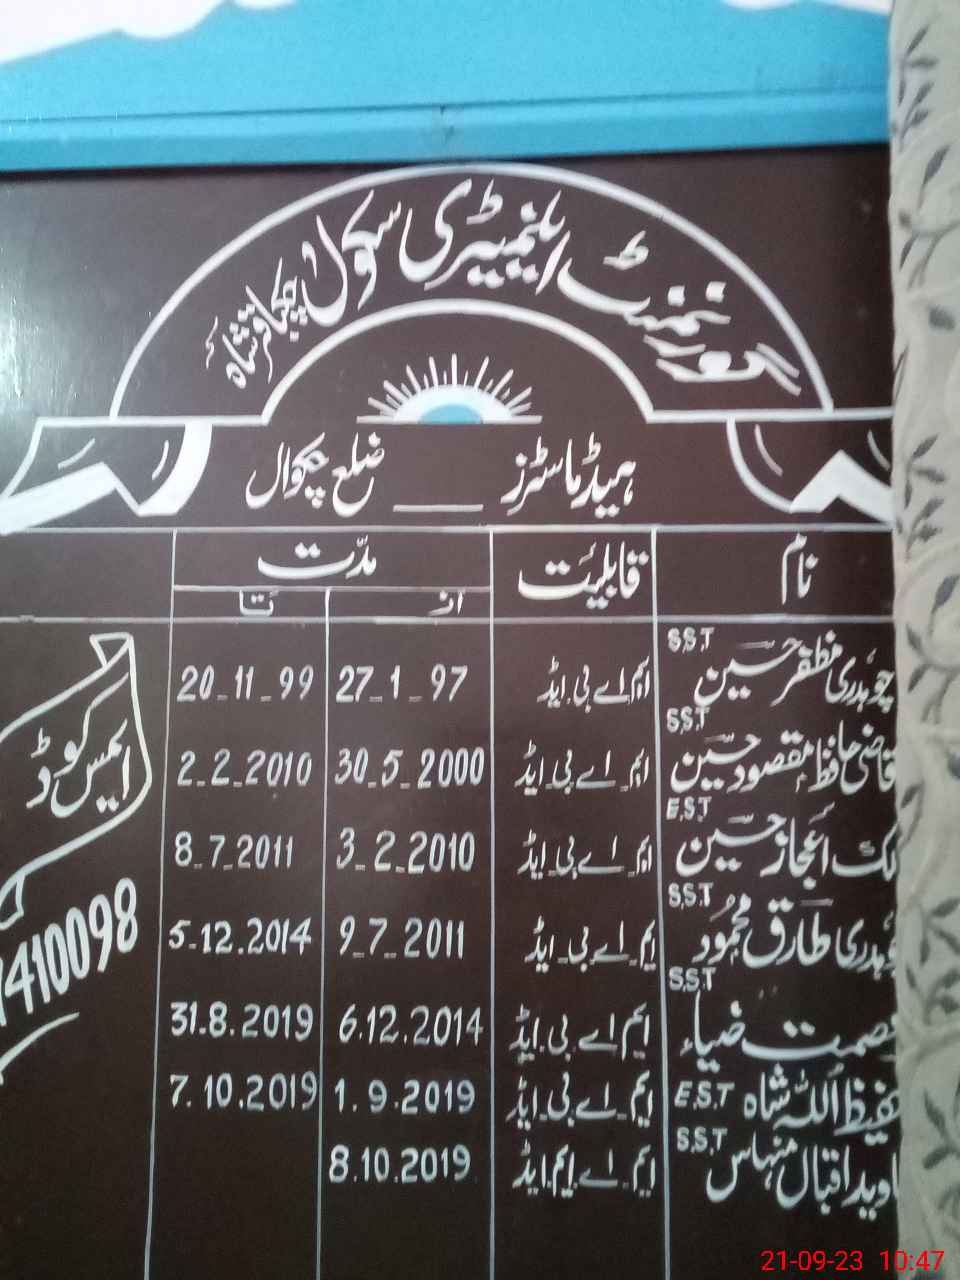 گورنمنٹ ایلیمینٹری سکول چکباقرشاہ
ہیڈ ماسٹرز ــــ ضلع چکوال
نام قابلیت مدّت
از تا
S.S.T
چوہدری مظفر حسین ایم اے بی ایڈ 27_1_97 20_11_99
S.S.T
قاضی حافظ مقصود حسین ایم_اے_بی_ایڈ 30_5_2000 2_2_2010
E.S.T
اعجاز حسین ایم_اے_بی_ایڈ 3_2_2010 8_7_2011
S.S.T
طارق محمود ایم_اے_بی_ایڈ 9_7_2011 5_12.2014
S.S.T
ضیاء ایم اے بی ایڈ 6.12.2014 31.8.2019
اللہ شاہ E.S.T ایم_اے_بی_ایڈ 1.9.2019 7.10.2019
S.S.T
اقبال منہاس ایم_اے_ایم_ایڈ 8.10.2019
ایمس کوڈ
410098
21-09-23 10:47